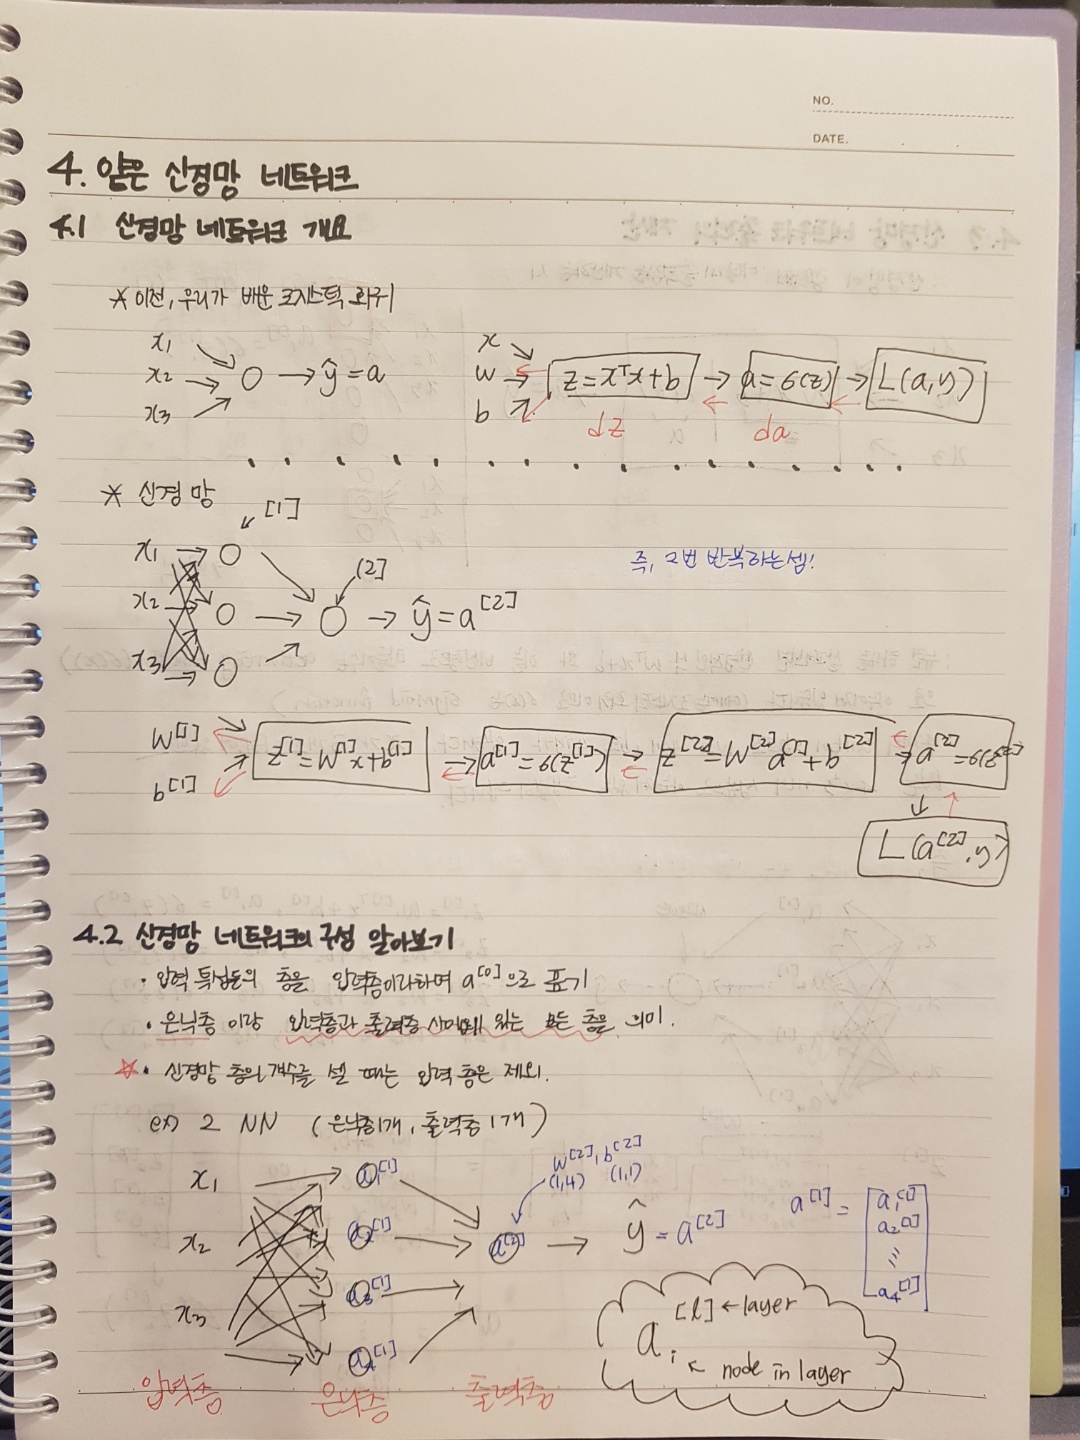 NO.
DATE.
4. 얕은 신경망 네트워크
4.1 신경망 네트워크 개요
* 이전, 우리가 배운 로지스틱 회귀
x₁
x₂ → ○ → ŷ = a
x₃
x
w → z = xᵀx + b → a = σ(z) → L(a, y)
b
dz da
* 신경망
[1]
x₁
x₂
x₃
[2]
ŷ = a^[2]
즉, 2번 반복하는셈!
W^[1]
b^[1]
z^[1] = W^[1]x + b^[1] → a^[1] = σ(z^[1]) → z^[2] = W^[2]a^[1] + b^[2] → a^[2] = σ(z^[2])
L(a^[2], y)
4.2 신경망 네트워크의 구성 알아보기
· 입력 특성들의 층을 입력층이라하며 a^[0]으로 표기
· 은닉층이랑 입력층과 출력층 사이에 있는 모든 층을 의미.
☆· 신경망 층의 개수를 셀 때는 입력 층은 제외.
ex) 2 NN (은닉층1개, 출력층1개)
x₁
x₂
x₃
a₁^[1]
a₂^[1]
a₃^[1]
a₄^[1]
W^[2], b^[2]
(1,4) (1,1)
a^[2] → ŷ = a^[2]
a^[1] = [a₁^[1]
a₂^[1]
⋮
a₄^[1]]
a_i^[l] ← layer
← node in layer
입력층 은닉층 출력층